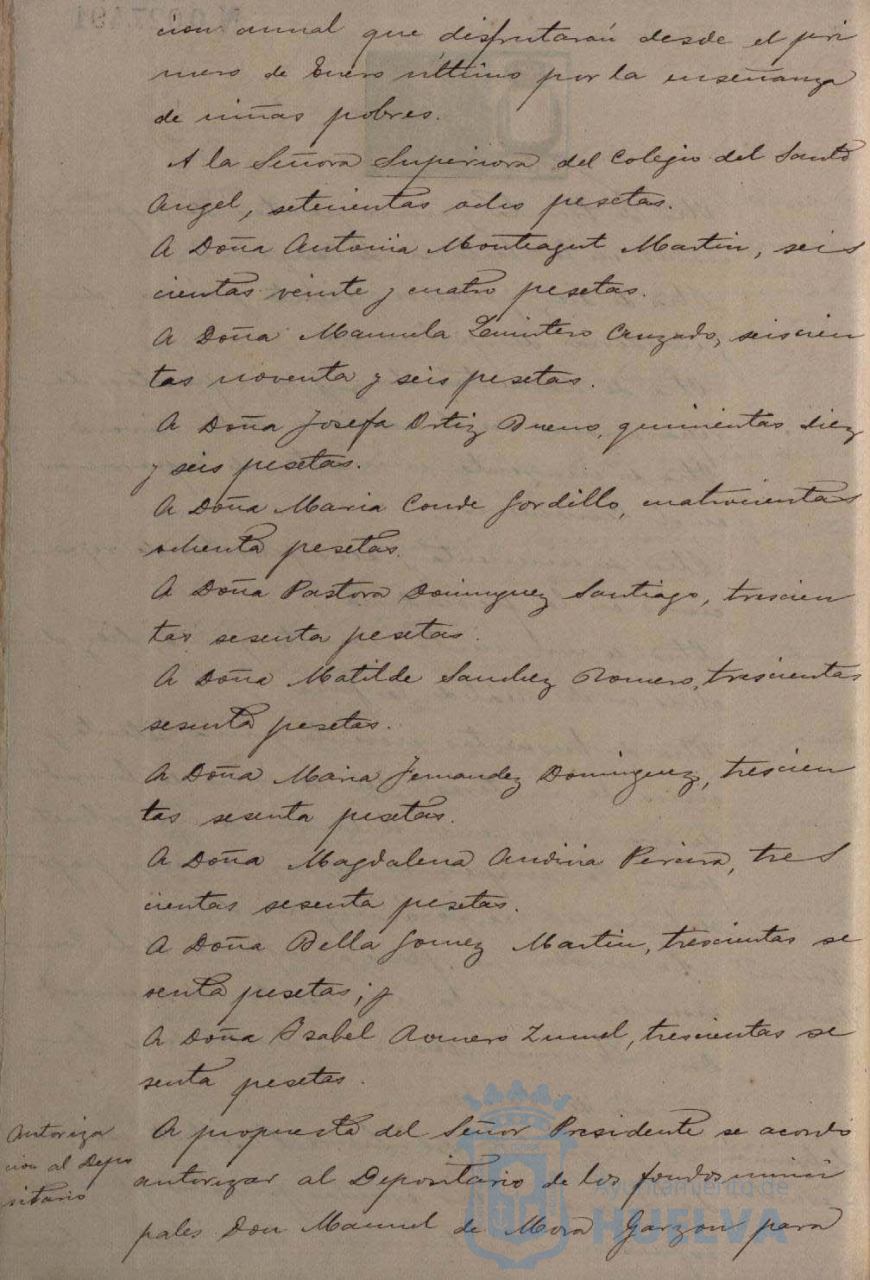 cion anual que disfrutarán desde el pri
mero de Enero último por la enseñanza
de niñas pobres.
A la Señora Superiora del Colegio del Santo
Angel, setecientas ocho pesetas.
A Doña Antonia Monteagut Martin, seis
cientas veinte y cuatro pesetas.
A Doña Manuela Quintero Cruzado, seiscien
tas noventa y seis pesetas.
A Doña Josefa Ortiz Bueno, quinientas diez
y seis pesetas.
A Doña Maria Conde Gordillo, cuatrocientas
ochenta pesetas.
A Doña Pastora Dominguez Santiago, trescien
tas sesenta pesetas.
A Doña Matilde Sanchez Romero, trescientas
sesenta pesetas.
A Doña Maria Fernandez Dominguez, trescien
tas sesenta pesetas.
A Doña Magdalena Pereira, tres
cientas sesenta pesetas.
A Doña Bella Gomez Martin, trescientas se
senta pesetas; y
A Doña Isabel Romero Zumel, trescientas se
senta pesetas.
Autoriza
cion al Depo
sitario
A propuesta del Señor Presidente se acordó
autorizar al Depositario de los fondos munici
pales Don Manuel de Mora Garzon para
Ayuntamiento de
HUELVA